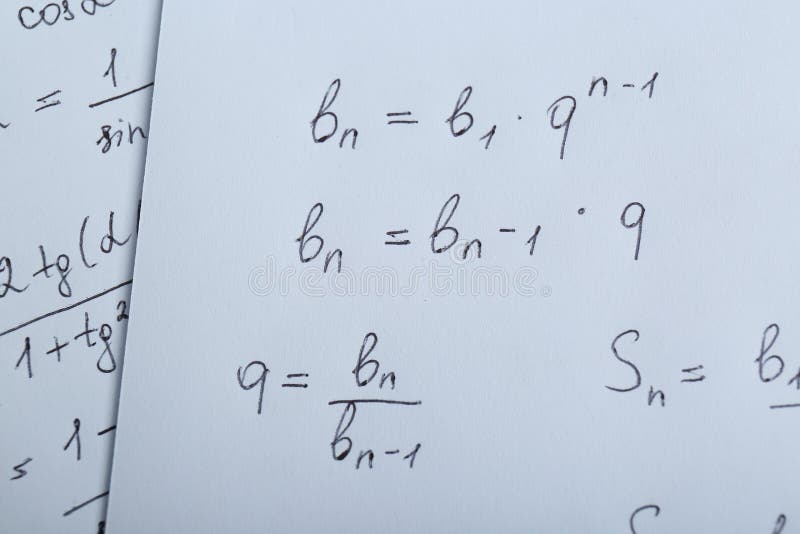 cos α
= 1/sin
2 tg(α
1 + tg²
= 1 -
bₙ = b₁ · qⁿ⁻¹
bₙ = bₙ₋₁ · q
q = bₙ/bₙ₋₁
Sₙ = b₁
dreamstime